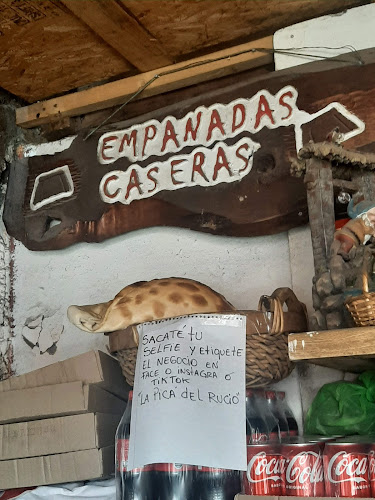 EMPANADAS
CASERAS
SACATE TU
SELFIE Y ETIQUETE
EL NEGOCIO EN
FACE O INSTAGRA O
TIKTOK
"LA PICA" DEL RUCIO"
Coca
Coca
Coca